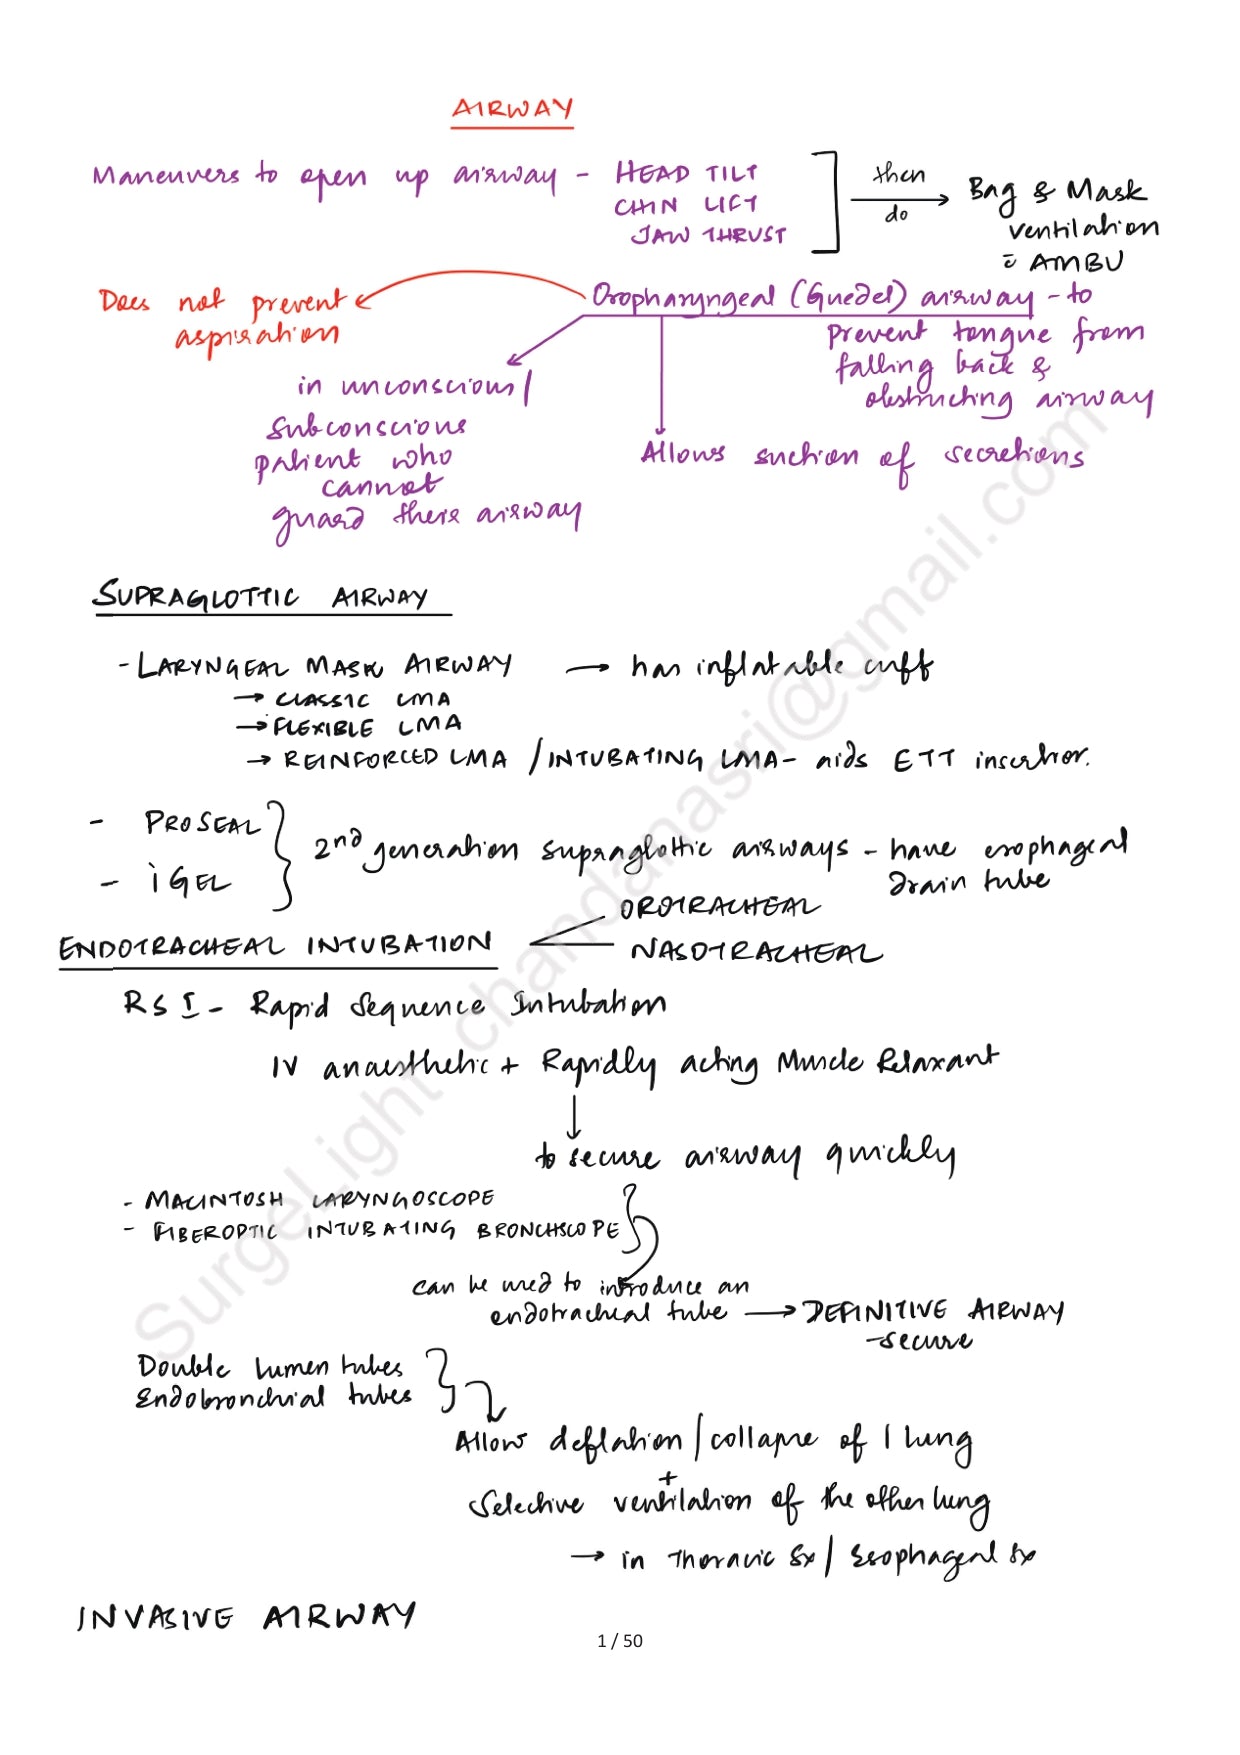 AIRWAY
Maneuvers to open up airway - HEAD TILT
CHIN LIFT
JAW THRUST
then
do
Bag & Mask
ventilation
c̄ AMBU
Does not prevent
aspiration
Oropharyngeal (Guedel) airway - to
prevent tongue from
falling back &
obstructing airway
in unconscious/
subconscious
patient who
cannot
guard their airway
Allows suction of secretions
SUPRAGLOTTIC AIRWAY
- LARYNGEAL MASK AIRWAY → has inflatable cuff
→ CLASSIC LMA
→ FLEXIBLE LMA
→ REINFORCED LMA / INTUBATING LMA - aids ETT insertion.
- PROSEAL
- iGEL
2nd generation supraglottic airways - have esophageal
drain tube
ENDOTRACHEAL INTUBATION
OROTRACHEAL
NASOTRACHEAL
RSI - Rapid Sequence Intubation
IV anaesthetic + Rapidly acting Muscle Relaxant
↓
to secure airway quickly
- MACINTOSH LARYNGOSCOPE
- FIBEROPTIC INTUBATING BRONCHSCOPE
can be used to introduce an
endotracheal tube → DEFINITIVE AIRWAY
- secure
Double lumen tubes
Endobronchial tubes
Allow deflation/collapse of 1 lung
+
Selective ventilation of the other lung
→ in Thoracic Sx / Esophageal Sx
INVASIVE AIRWAY
1 / 50
SurgeLight chandanasri@gmail.com